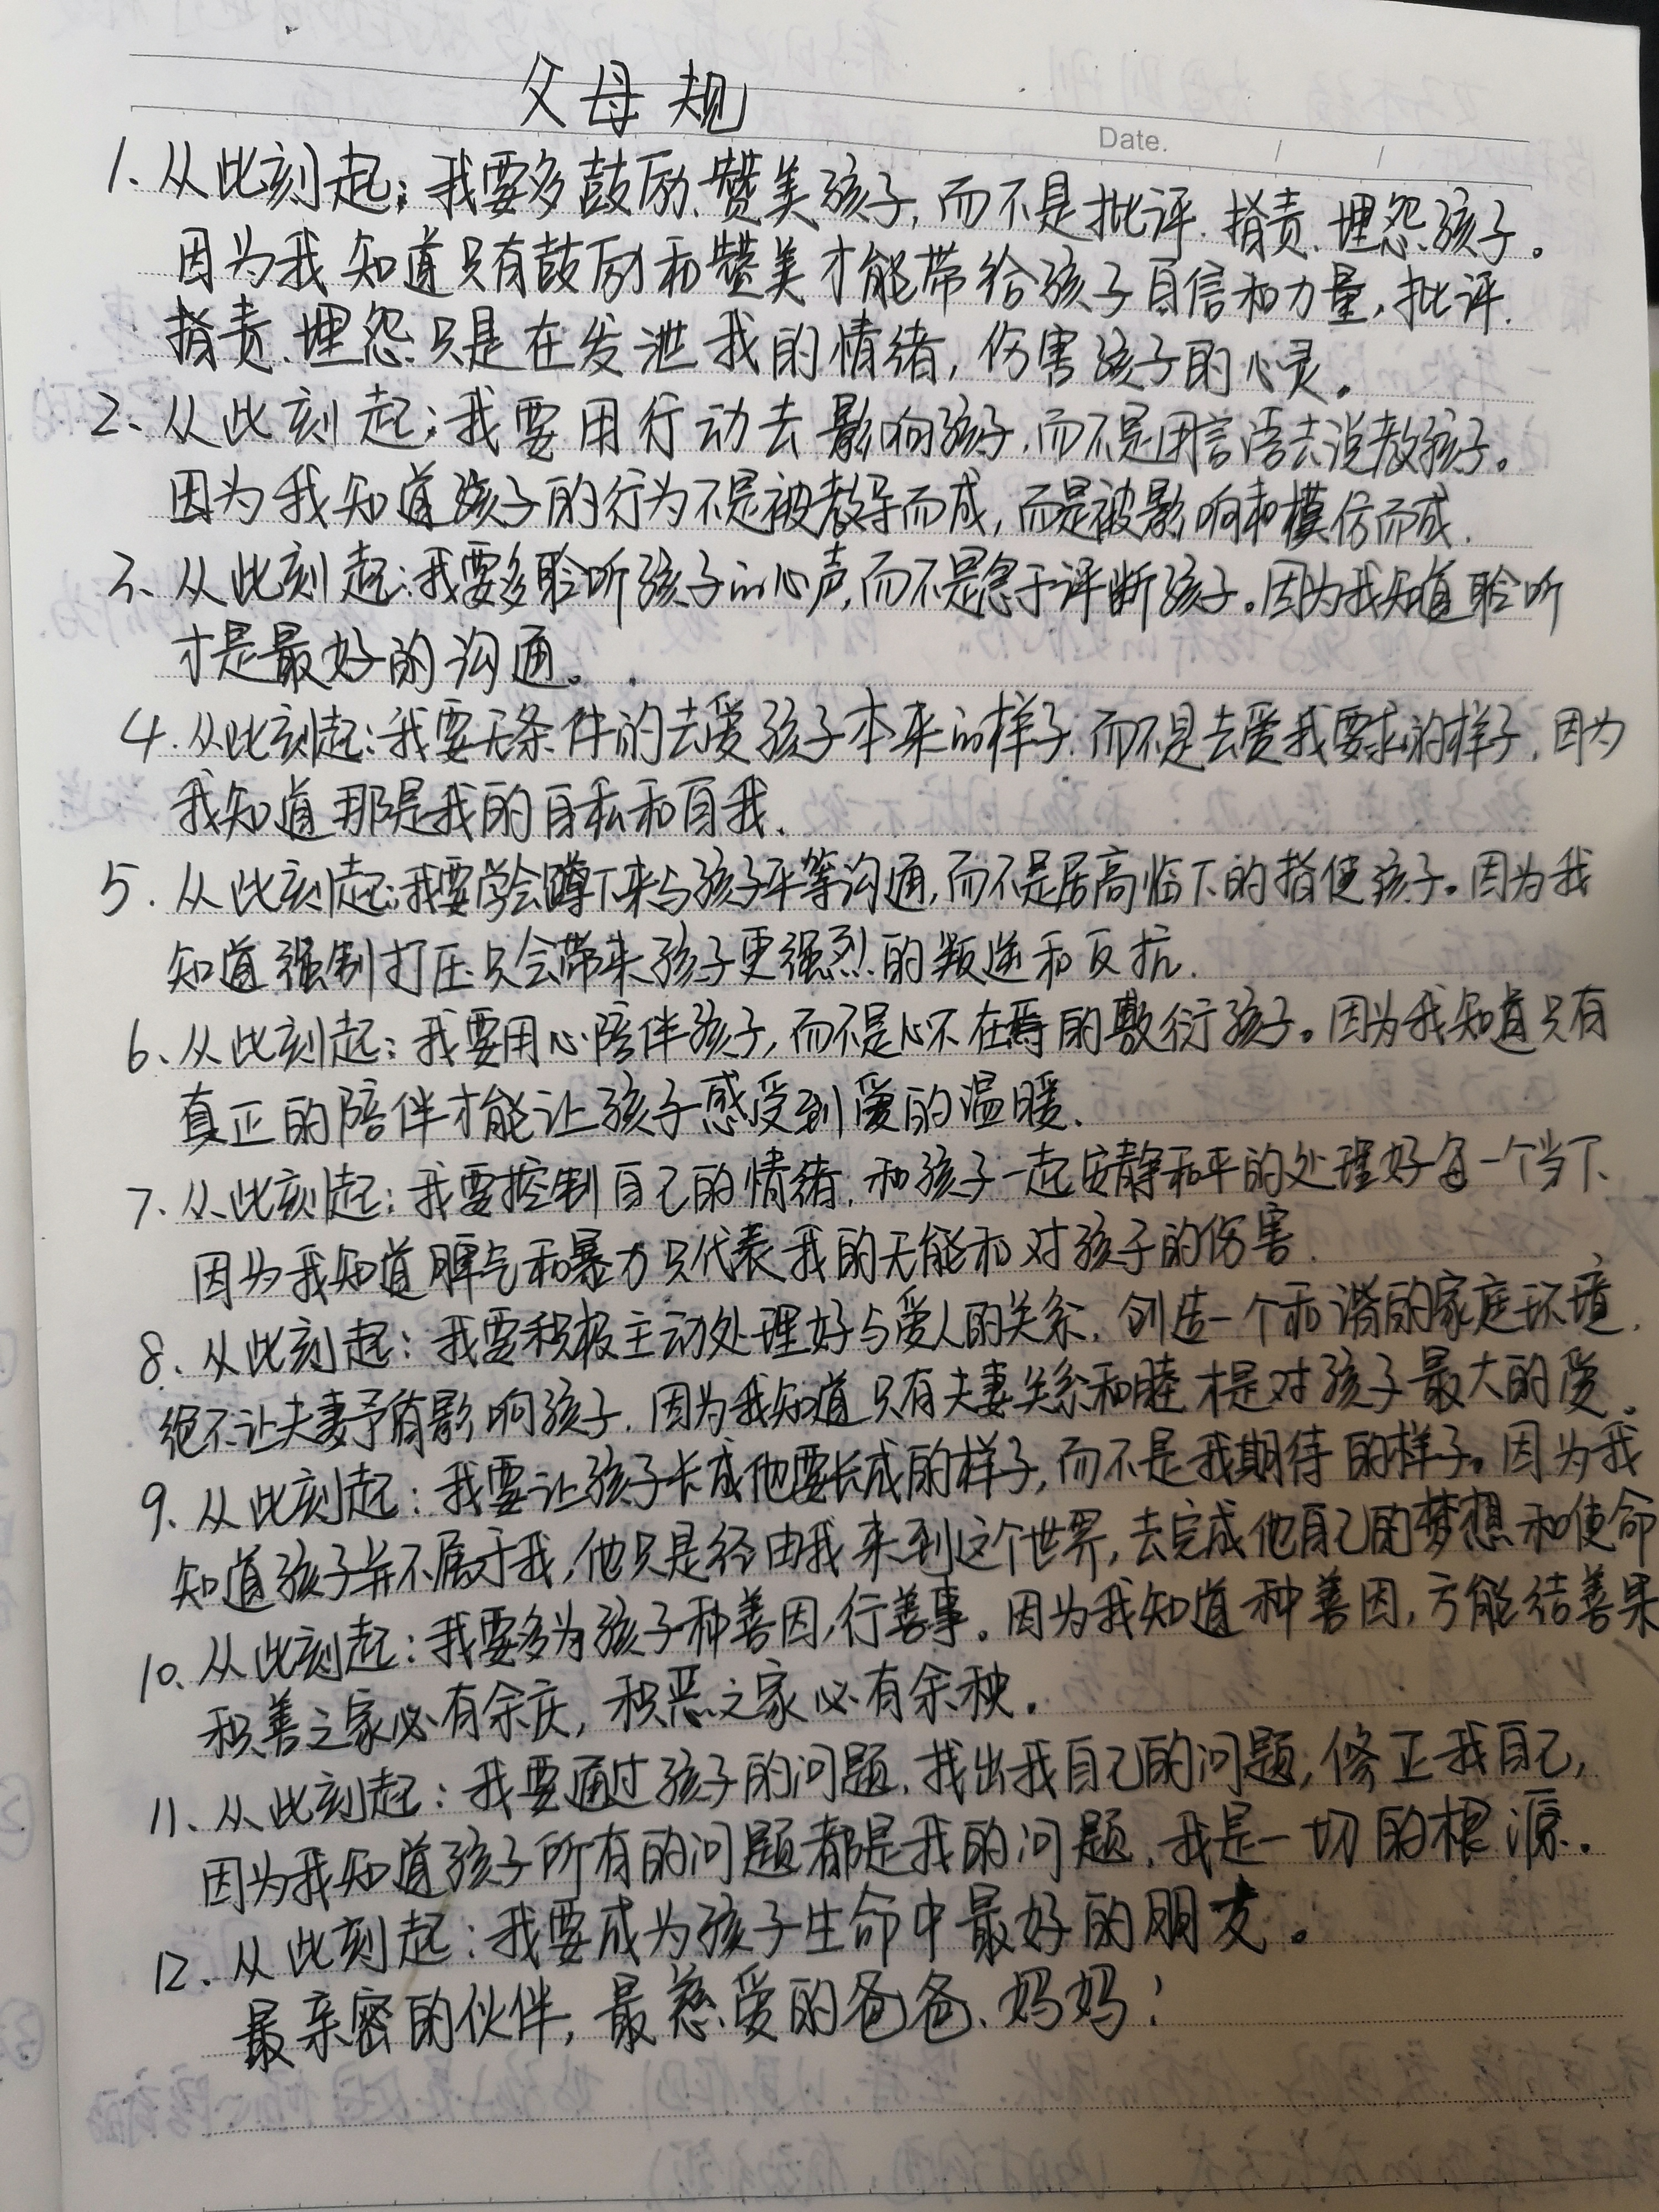 父母规
Date. / /
1. 从此刻起:我要多鼓励、赞美孩子,而不是批评、指责、埋怨孩子。
因为我知道只有鼓励和赞美才能带给孩子自信和力量,批评、
指责、埋怨只是在发泄我的情绪,伤害孩子的心灵。
2、从此刻起:我要用行动去影响孩子,而不是用言语去说教孩子。
因为我知道孩子的行为不是被教导而成,而是被影响和模仿而成.
3、从此刻起:我要多聆听孩子的心声,而不是急于评断孩子。因为我知道聆听
才是最好的沟通。
4. 从此刻起:我要无条件的去爱孩子本来的样子.而不是去爱我要求的样子.因为
我知道那是我的自私和自我.
5. 从此刻起:我要学会蹲下来与孩子平等沟通,而不是居高临下的指使孩子。因为我
知道强制打压只会带来孩子更强烈的叛逆和反抗.
6、从此刻起:我要用心陪伴孩子,而不是心不在焉的敷衍孩子。因为我知道只有
真正的陪伴才能让孩子感受到爱的温暖.
7、从此刻起:我要控制自己的情绪,和孩子一起安静和平的处理好每一个当下、
因为我知道脾气和暴力只代表我的无能和对孩子的伤害.
8、从此刻起:我要积极主动处理好与爱人的关系,创造一个和谐的家庭环境,
绝不让夫妻矛盾影响孩子.因为我知道只有夫妻关系和睦才是对孩子最大的爱。
9、从此刻起:我要让孩子长成他要长成的样子,而不是我期待的样子。因为我
知道孩子并不属于我,他只是经由我来到这个世界,去完成他自己的梦想和使命
10、从此刻起:我要多为孩子种善因,行善事。因为我知道种善因,方能结善果
积善之家必有余庆,积恶之家必有余秧。
11、从此刻起:我要通过孩子的问题,找出我自己的问题,修正我自己,
因为我知道孩子所有的问题都是我的问题,我是一切的根源。
12、从此刻起:我要成为孩子生命中最好的朋友。
最亲密的伙伴,最慈爱的爸爸、妈妈!